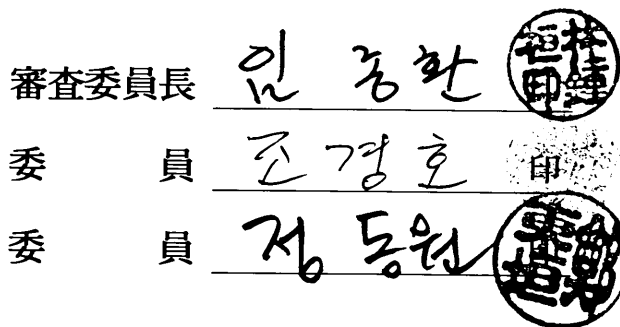 審査委員長 임 종환
委 員 조경호 印
委 員 정 동원